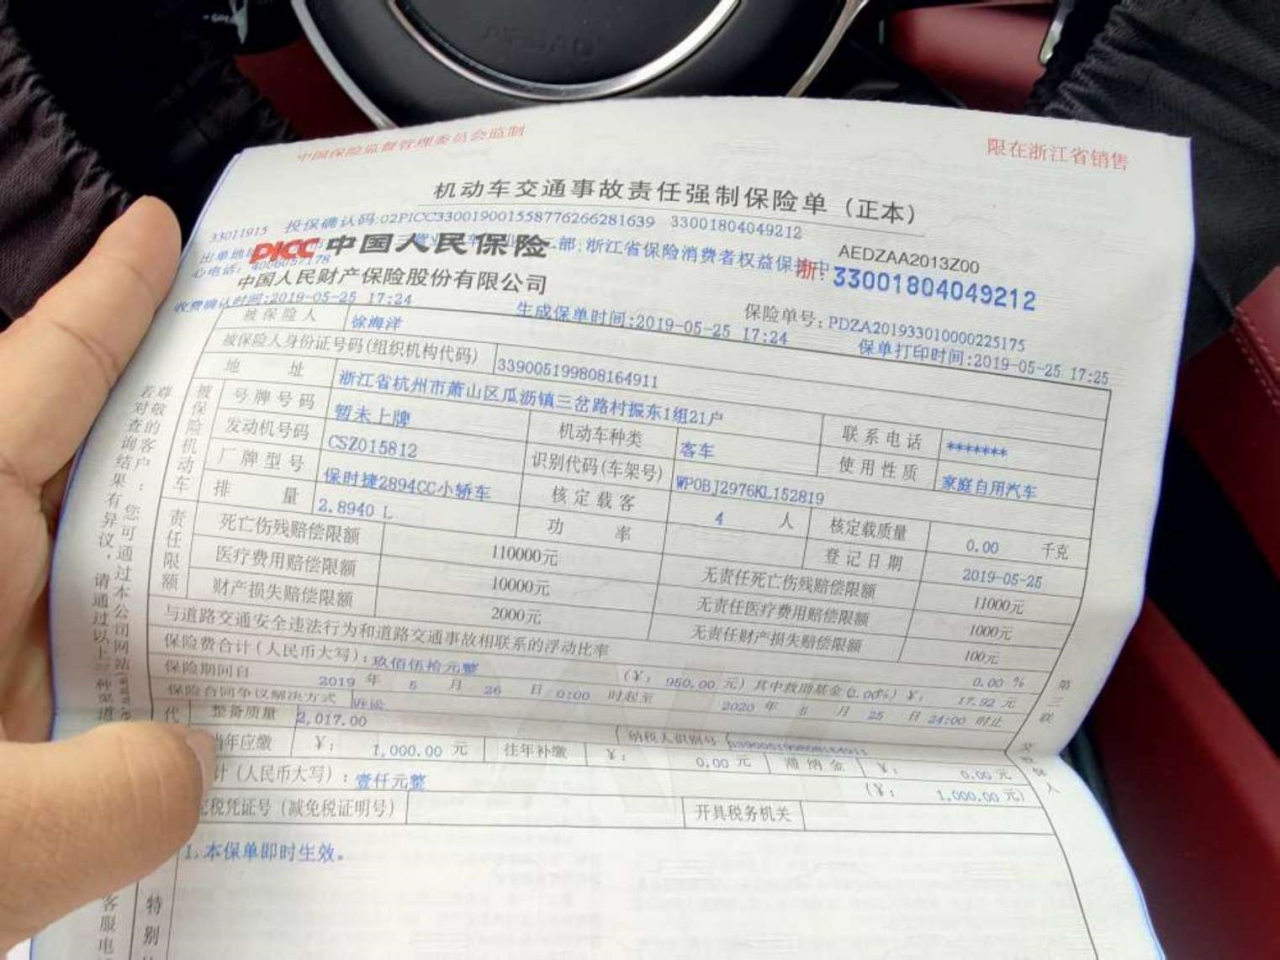 中国保险监督管理委员会监制
限在浙江省销售
机动车交通事故责任强制保险单 (正本)
33011915 投保确认码:02PICC330019001558776266281639 33001804049212
部:浙江省保险消费者权益保护中
AEDZAA2013Z00
PICC 中国人民保险
浙: 33001804049212
心电话: 4006057178
中国人民财产保险股份有限公司
保险单号: PDZA201933010000225175
收费确认时间:2019-05-25 17:24 生成保单时间:2019-05-25 17:24 保单打印时间:2019-05-25 17:25
被保险人 徐海洋
被保险人身份证号码(组织机构代码) 339005199808164911
地址 浙江省杭州市萧山区瓜沥镇三岔路村振东1组21户 联系电话 *******
被保险机动车
号牌号码 暂未上牌 机动车种类 客车 使用性质 家庭自用汽车
发动机号码 CSZ015812 识别代码(车架号) WP0BJ2976KL152819
厂牌型号 保时捷2894CC小轿车 核定载客 4 人 核定载质量 0.00 千克
排量 2.8940 L 功率 登记日期 2019-05-25
责任限额
死亡伤残赔偿限额 110000元 无责任死亡伤残赔偿限额 11000元
医疗费用赔偿限额 10000元 无责任医疗费用赔偿限额 1000元
财产损失赔偿限额 2000元 无责任财产损失赔偿限额 100元
与道路交通安全违法行为和道路交通事故相联系的浮动比率 0.00 %
保险费合计(人民币大写): 玖佰伍拾元整 (¥: 950.00 元) 其中救助基金 (2.00%) ¥: 17.92 元
保险期间自 2019 年 5 月 26 日 0:00 时起至 2020 年 5 月 25 日 24:00 时止
保险合同争议解决方式 诉讼
代
整备质量 2,017.00 纳税人识别号 339005199808164911
当年应缴 ¥: 1,000.00 元 往年补缴 ¥: 0.00 元 滞纳金 ¥: 0.00 元
计(人民币大写): 壹仟元整 (¥: 1,000.00 元)
完税凭证号 (减免税证明号) 开具税务机关
1.本保单即时生效。
特别
尊敬的客户:您可通过本公司网站
若对查询结果有异议,请通过以上三种渠道
客服电
第三联